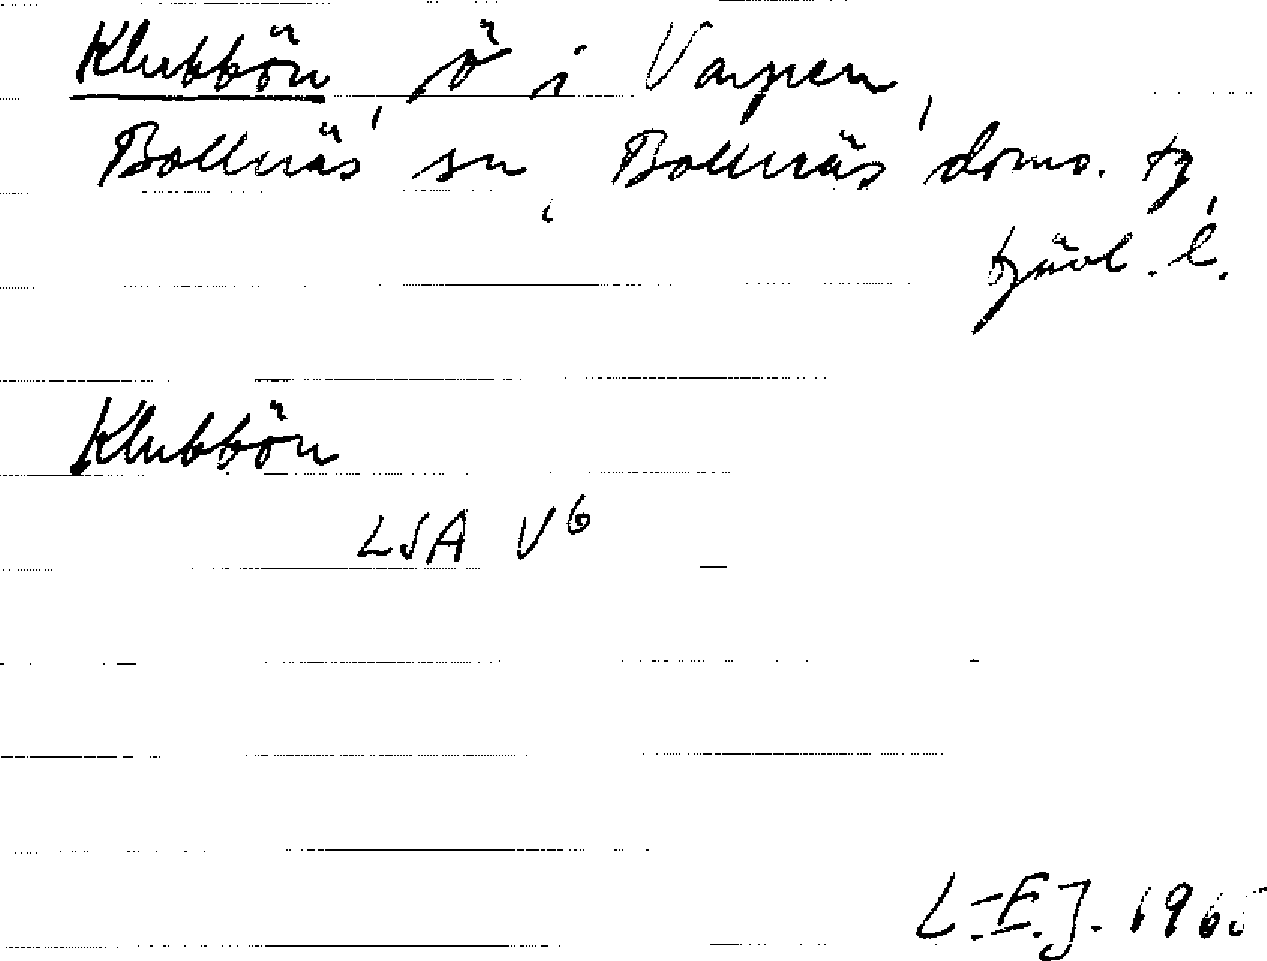 Klubbön, ö i Varpen,
Bollnäs sn, Bollnäs doms. tg,
Gävl. l.
Klubbön
LSA V6
L.-E.J. 1965